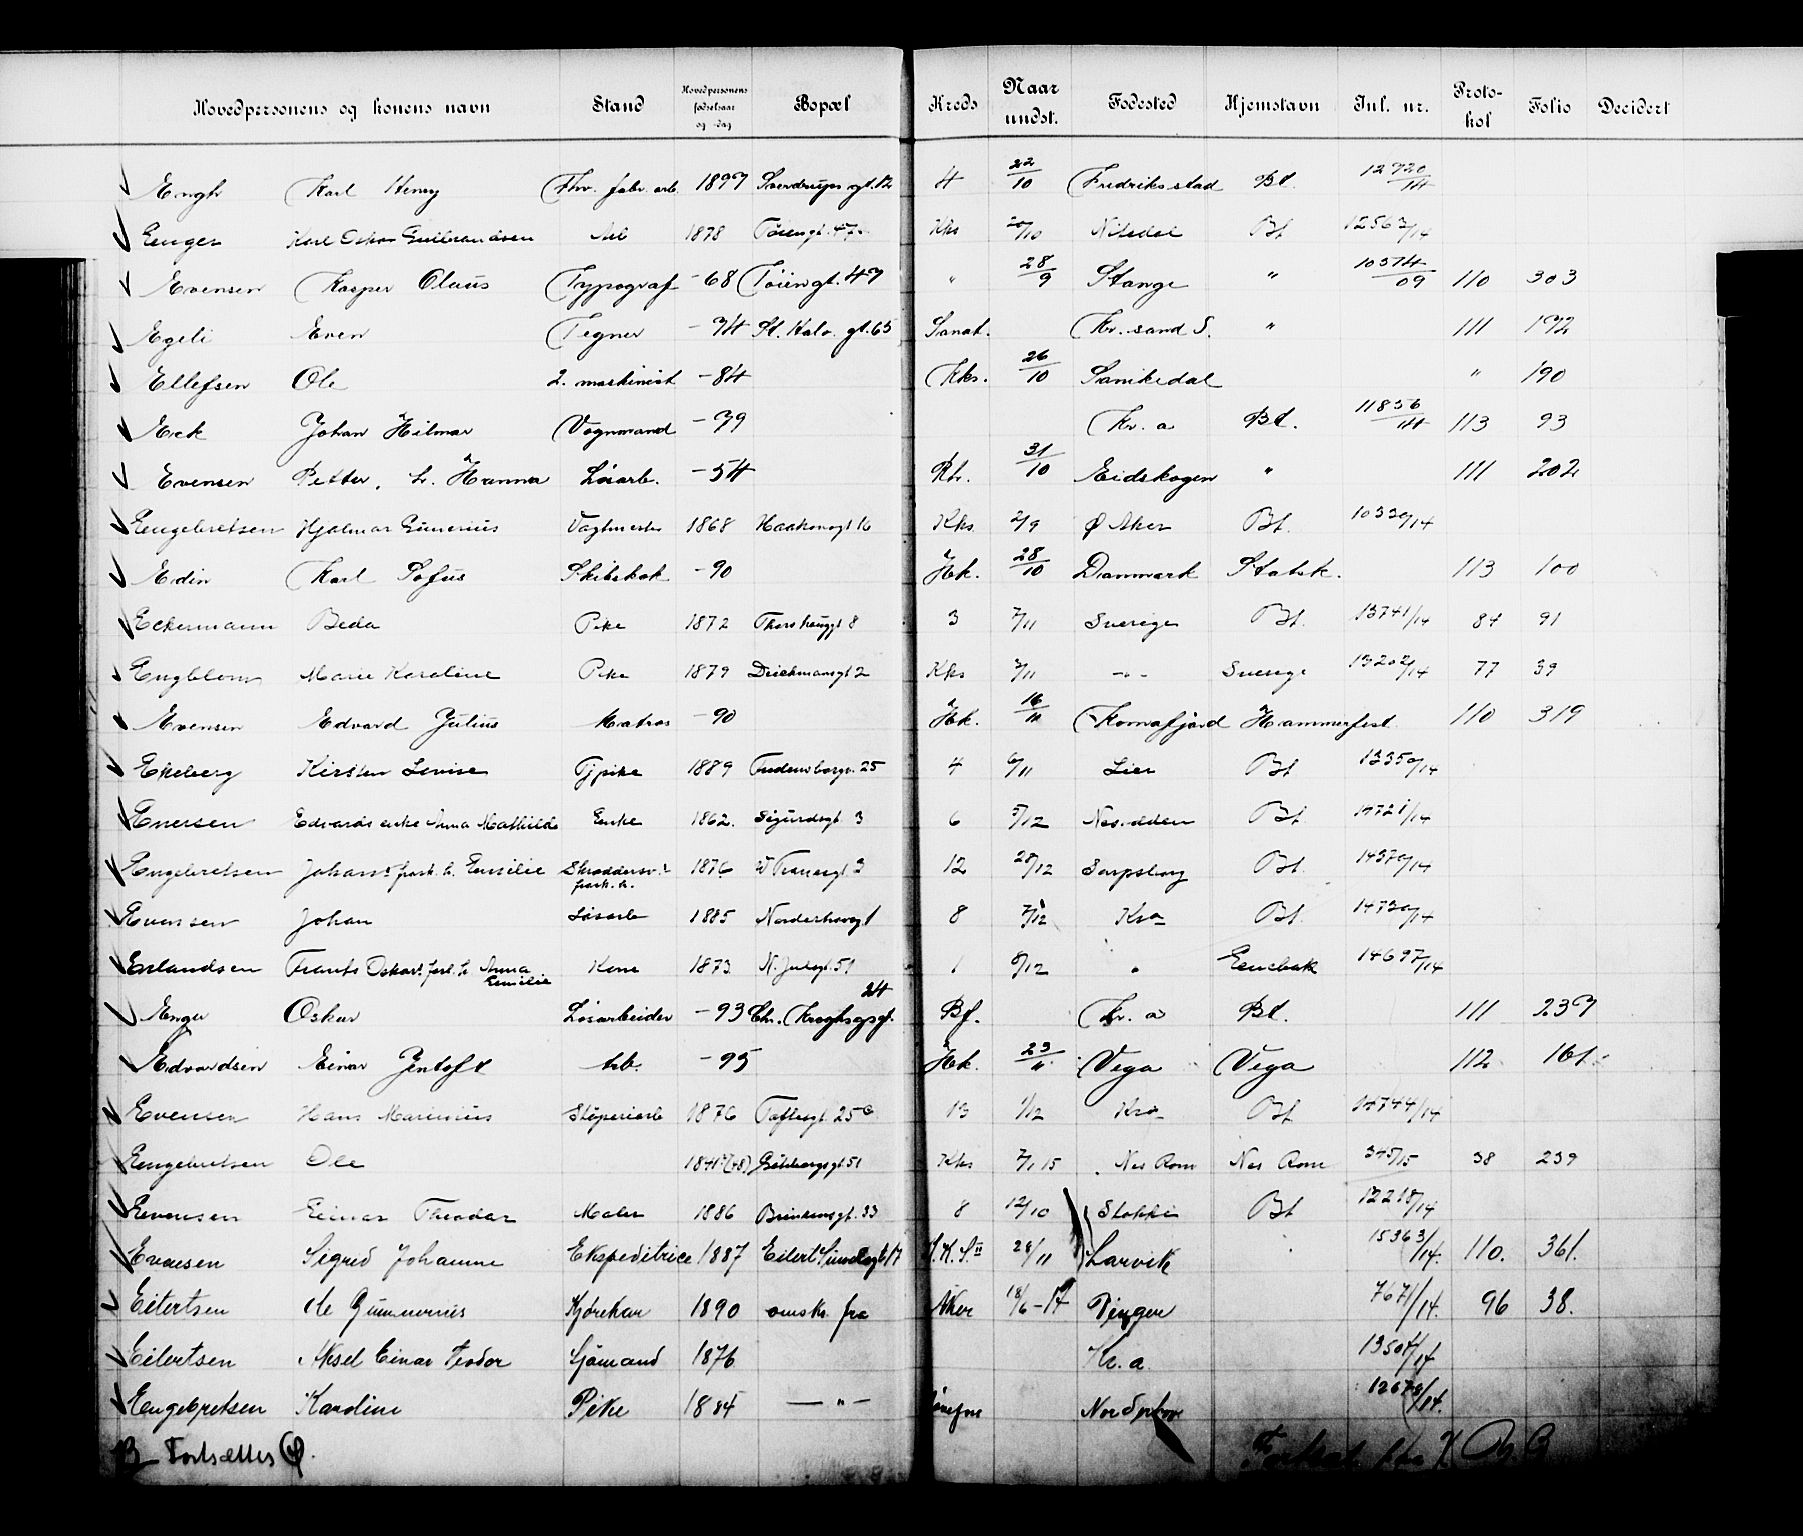 Hovedpersonens og konens navn Stand Hovedpersonens fødselsaar og -dag Bopæl Kreds Naar undst. Fødested Hjemstavn Inl. nr. Proto-kol Folio Decidert
Engh Karl Henry Thv. fabr. arb. 1897 Sverdrups gt. 12 4 22/10 Fredriksstad Bt. 12920/14
Enger Karl Oskar Gulbrandsen Arb 1878 Tøiengt. 47 Kks 20/10 Nitedal Bt 12563/14
Evensen Kasper Olaus Typograf -68 Tøiengt. 47 " 28/9 Stange " 10574/09 110 303
Egeli Even Tegner -74 St. Halv. gt. 65 Sanat. Kr. sand S. " 111 192
Ellefsen Ole 2. maskinist -84 Kks. 26/10 Sanikedal " 190
Eck Johan Hilmar Vognmand -79 Kr. a Bt. 11856/14 113 93
Evensen Petter, h. Hanna Løsarb. -54 Rh. 31/10 Eidskogen " 111 202
Engebretsen Hjalmar Gunerius Vagtmester 1868 Haakonsgt 16 Kks 2/9 Ø Aker Bt. 10330/14
Edin Karl Sofus Skibskok -90 Hk. 28/10 Danmark Statsk. 113 100
Eckermann Beda Pike 1872 Thorshauggt 8 3 7/11 Sverige Bt. 13741/14 84 91
Engblom Marie Karoline Pike 1879 Deichmansgt 2 Kks 3/11 -"- Sverige 13202/14 77 39
Evensen Edvard Julius Matros -90 Hk. 16/11 Komafjord Hammerfest 110 319
Ekeberg Kirsten Lovise Tjpike 1889 Fredensborgv. 25 4 6/11 Lier Bt 1335/14
Enersen Edvards enke Anna Mathilde Enke 1862. Sigurdsgt 3 6 5/12 Nesodden Bt. 14721/14
Engebretsen Johans fork. h. Emilie Skræddersv. fork. h. 1876 W Tranesgt 3 12 28/12 Sarpsborg Bt. 14370/14
Evensen Johan Løsarb 1885 Norderhovgt 8 7/12 Kra Bt. 14730/14
Erlandsen Frants Oskars forl. h Anna Emilie Kone 1873 N. Julsgt. 51 1 6/12 " Enebak 14697/14
Enger Oskar Løsarbeider -93 Chr. Kroghsgt. 24 Bf. Kr. a Bt. 111 237
Edvardsen Einar Jentoft Arb. -95 Hk. 23/11 Vega Vega 112 161.
Evensen Hans Marinius Støperiarb 1876 Toftesgt. 25 c 13 1/12 Kra Bt 14744/14
Engebretsen Ole 1841 (48) Gøteborggt 51 Kks 7/1 15 Nes Rom Nes Rom 345/15 38 239
Evensen Einar Theodor Maler 1886 Brinkensgt. 33 8 12/10 Stokke Bt 12218/14
Evensen Sigrid Johanne Ekspeditrice 1887 Eilert Sundtsgt 17 K. S. II 28/11 Larvik 15363/14. 110. 361.
Eilertsen Ole Gunnerius Kjørekar 1890 omsk. fra Aker 18/6-14 Vinger 7671/14. 96 38.
Eilertsen Aksel Einar Teodor Sjømand 1876 Kr. a. 13504/14
Engebretsen Karoline Pike 1884 -"- Hønefos 12678/14.
Fortsættes